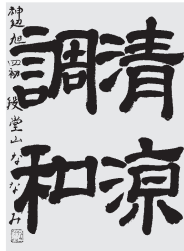 清涼
調和
神辺旭 四初 後堂山ななみ